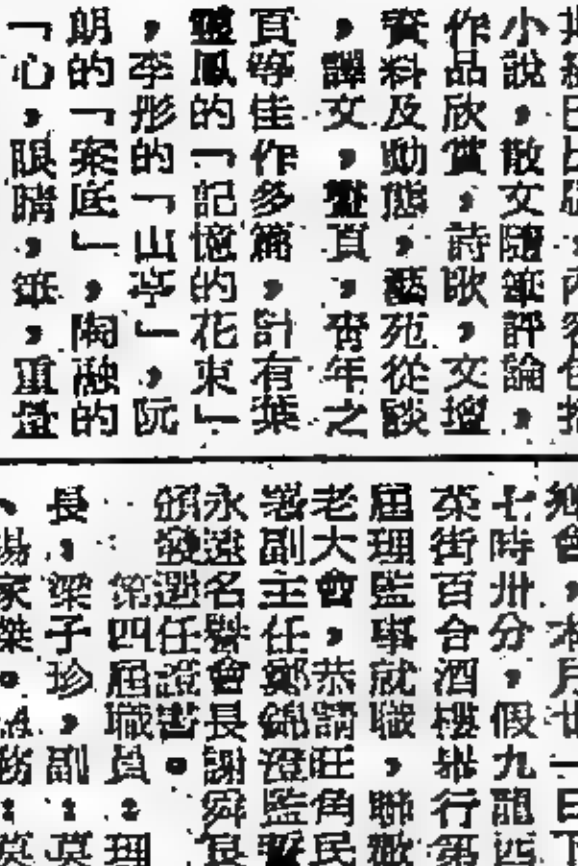 小說，散文隨筆評論，
作品欣賞，詩歌，文壇
資料及動態，藝苑從談
，譯文，畫頁，青年之
頁等佳作多篇，計有葉
靈鳳的「記憶的花束」
，李彤的「山亭」，阮
朗的「案底」，陶融的
「心，眼睛，筆，重量
鄉會，本月廿一日下
七時卅分，假九龍西
茶街百合酒樓舉行第
屆理監事就職，聯歡
老大會，恭請旺角民
署副主任鄭錦澄監誓
永遠名譽會長謝舜
頒發選任證書。
第四屆職員：理
長：梁子珍，副：莫